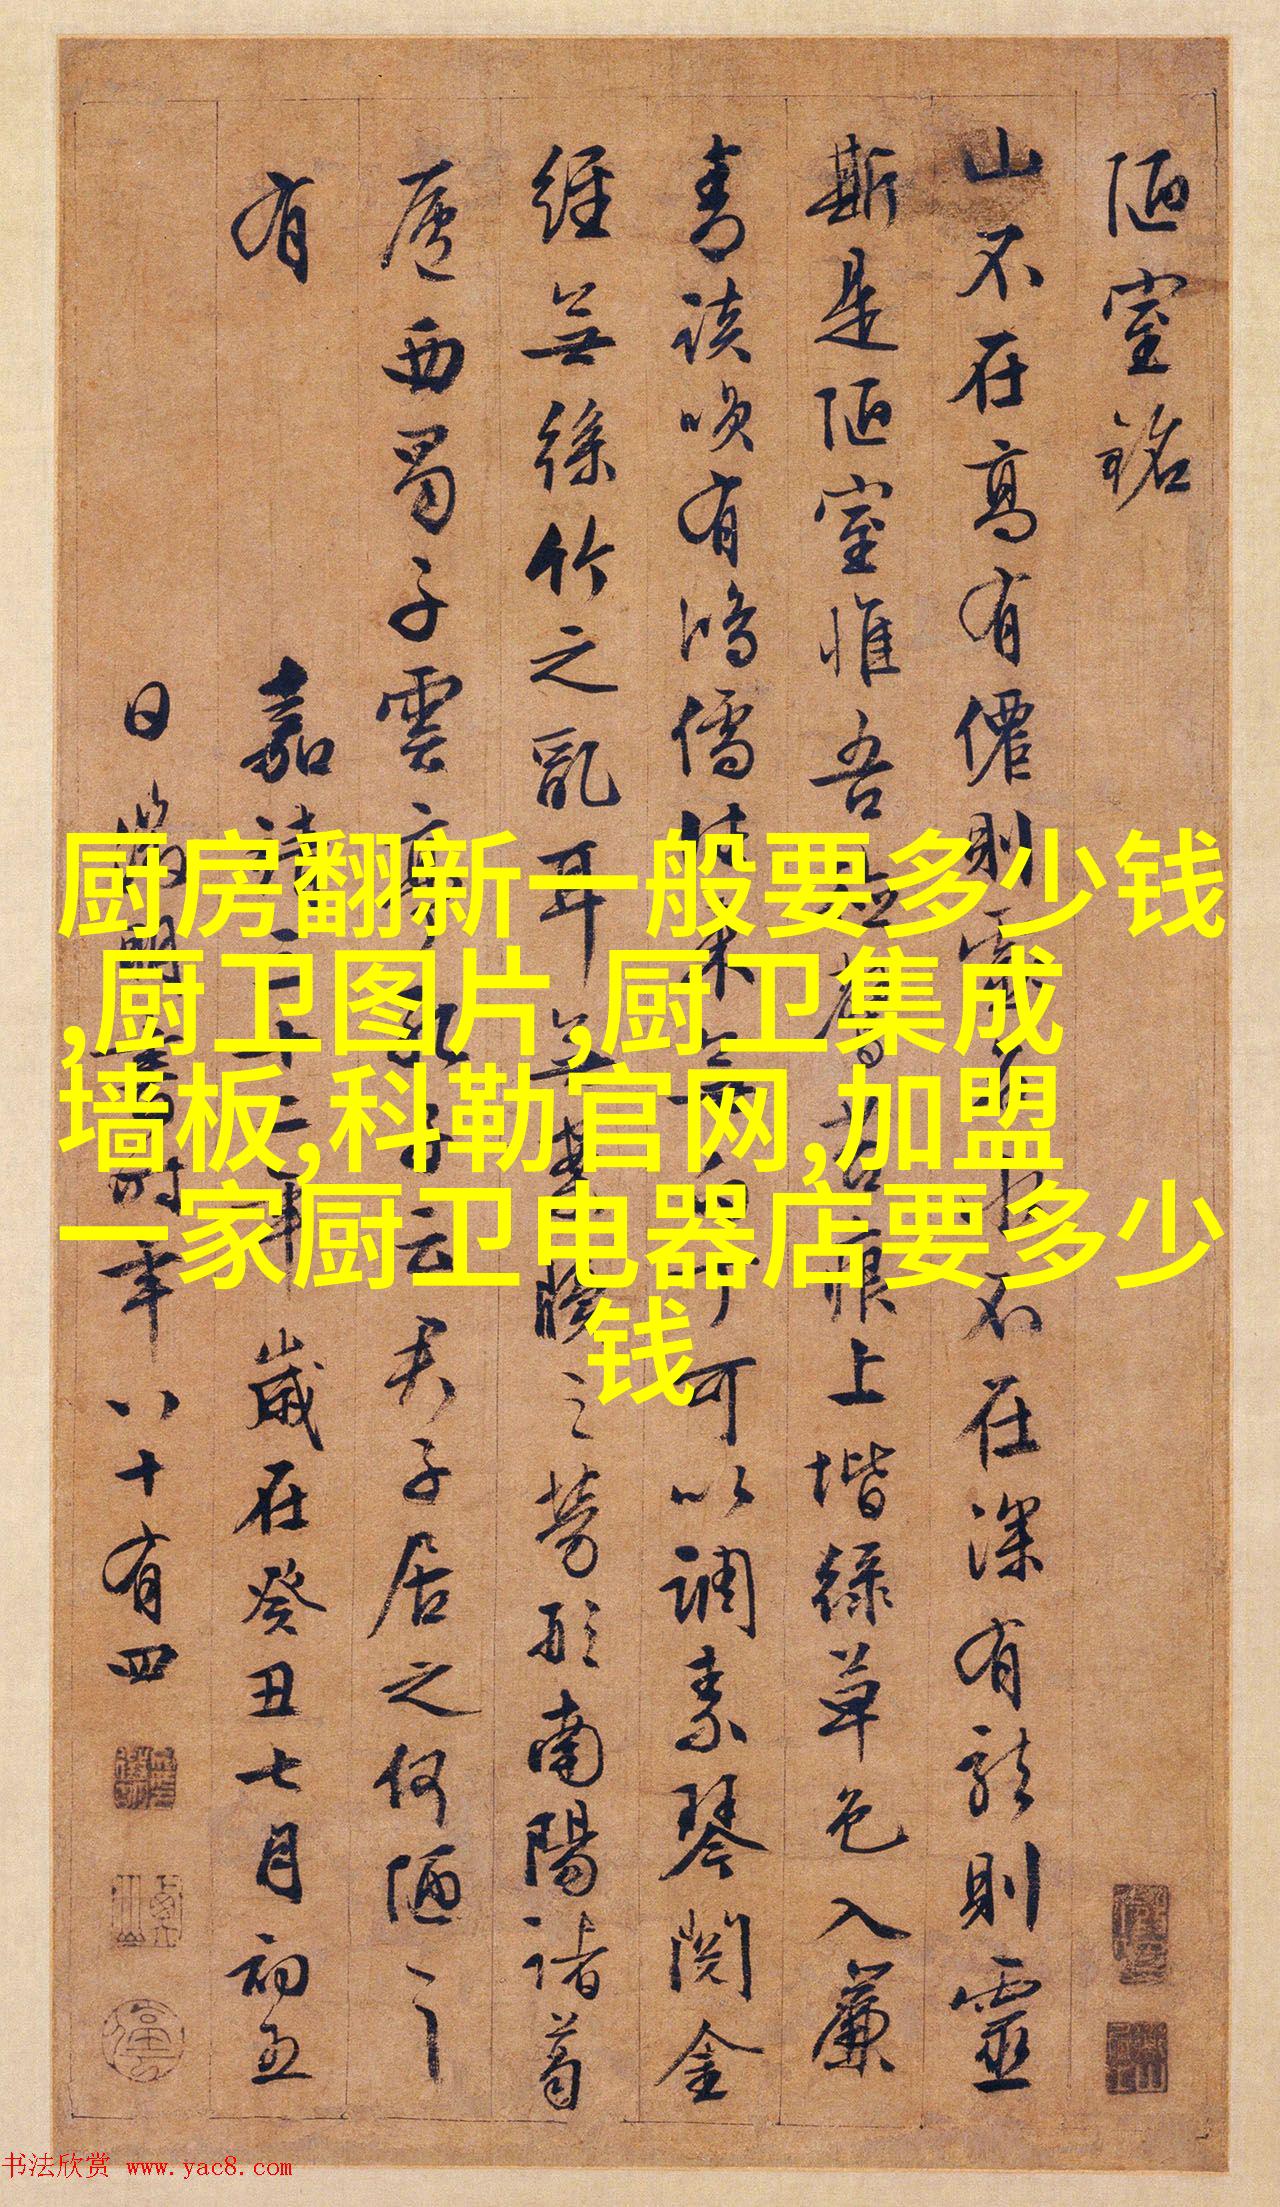 陋室銘
山不在高有僊則水不在深有龍則靈
斯是陋室惟吾德馨苔痕上堦綠草色入簾
青談咲有鴻儒往來無白丁可以調素琴閱金
經無絲竹之亂耳無案牘之勞形南陽諸葛
廬西蜀子雲亭孔子云君子居之何陋之
有
嘉靖三十二年歲在癸丑七月初五
日徵明書時年八十有四
厨房翻新一般要多少钱
,厨卫图片,厨卫集成
墙板,科勒官网,加盟
一家厨卫电器店要多少
钱
书法欣赏 www.yac8.com